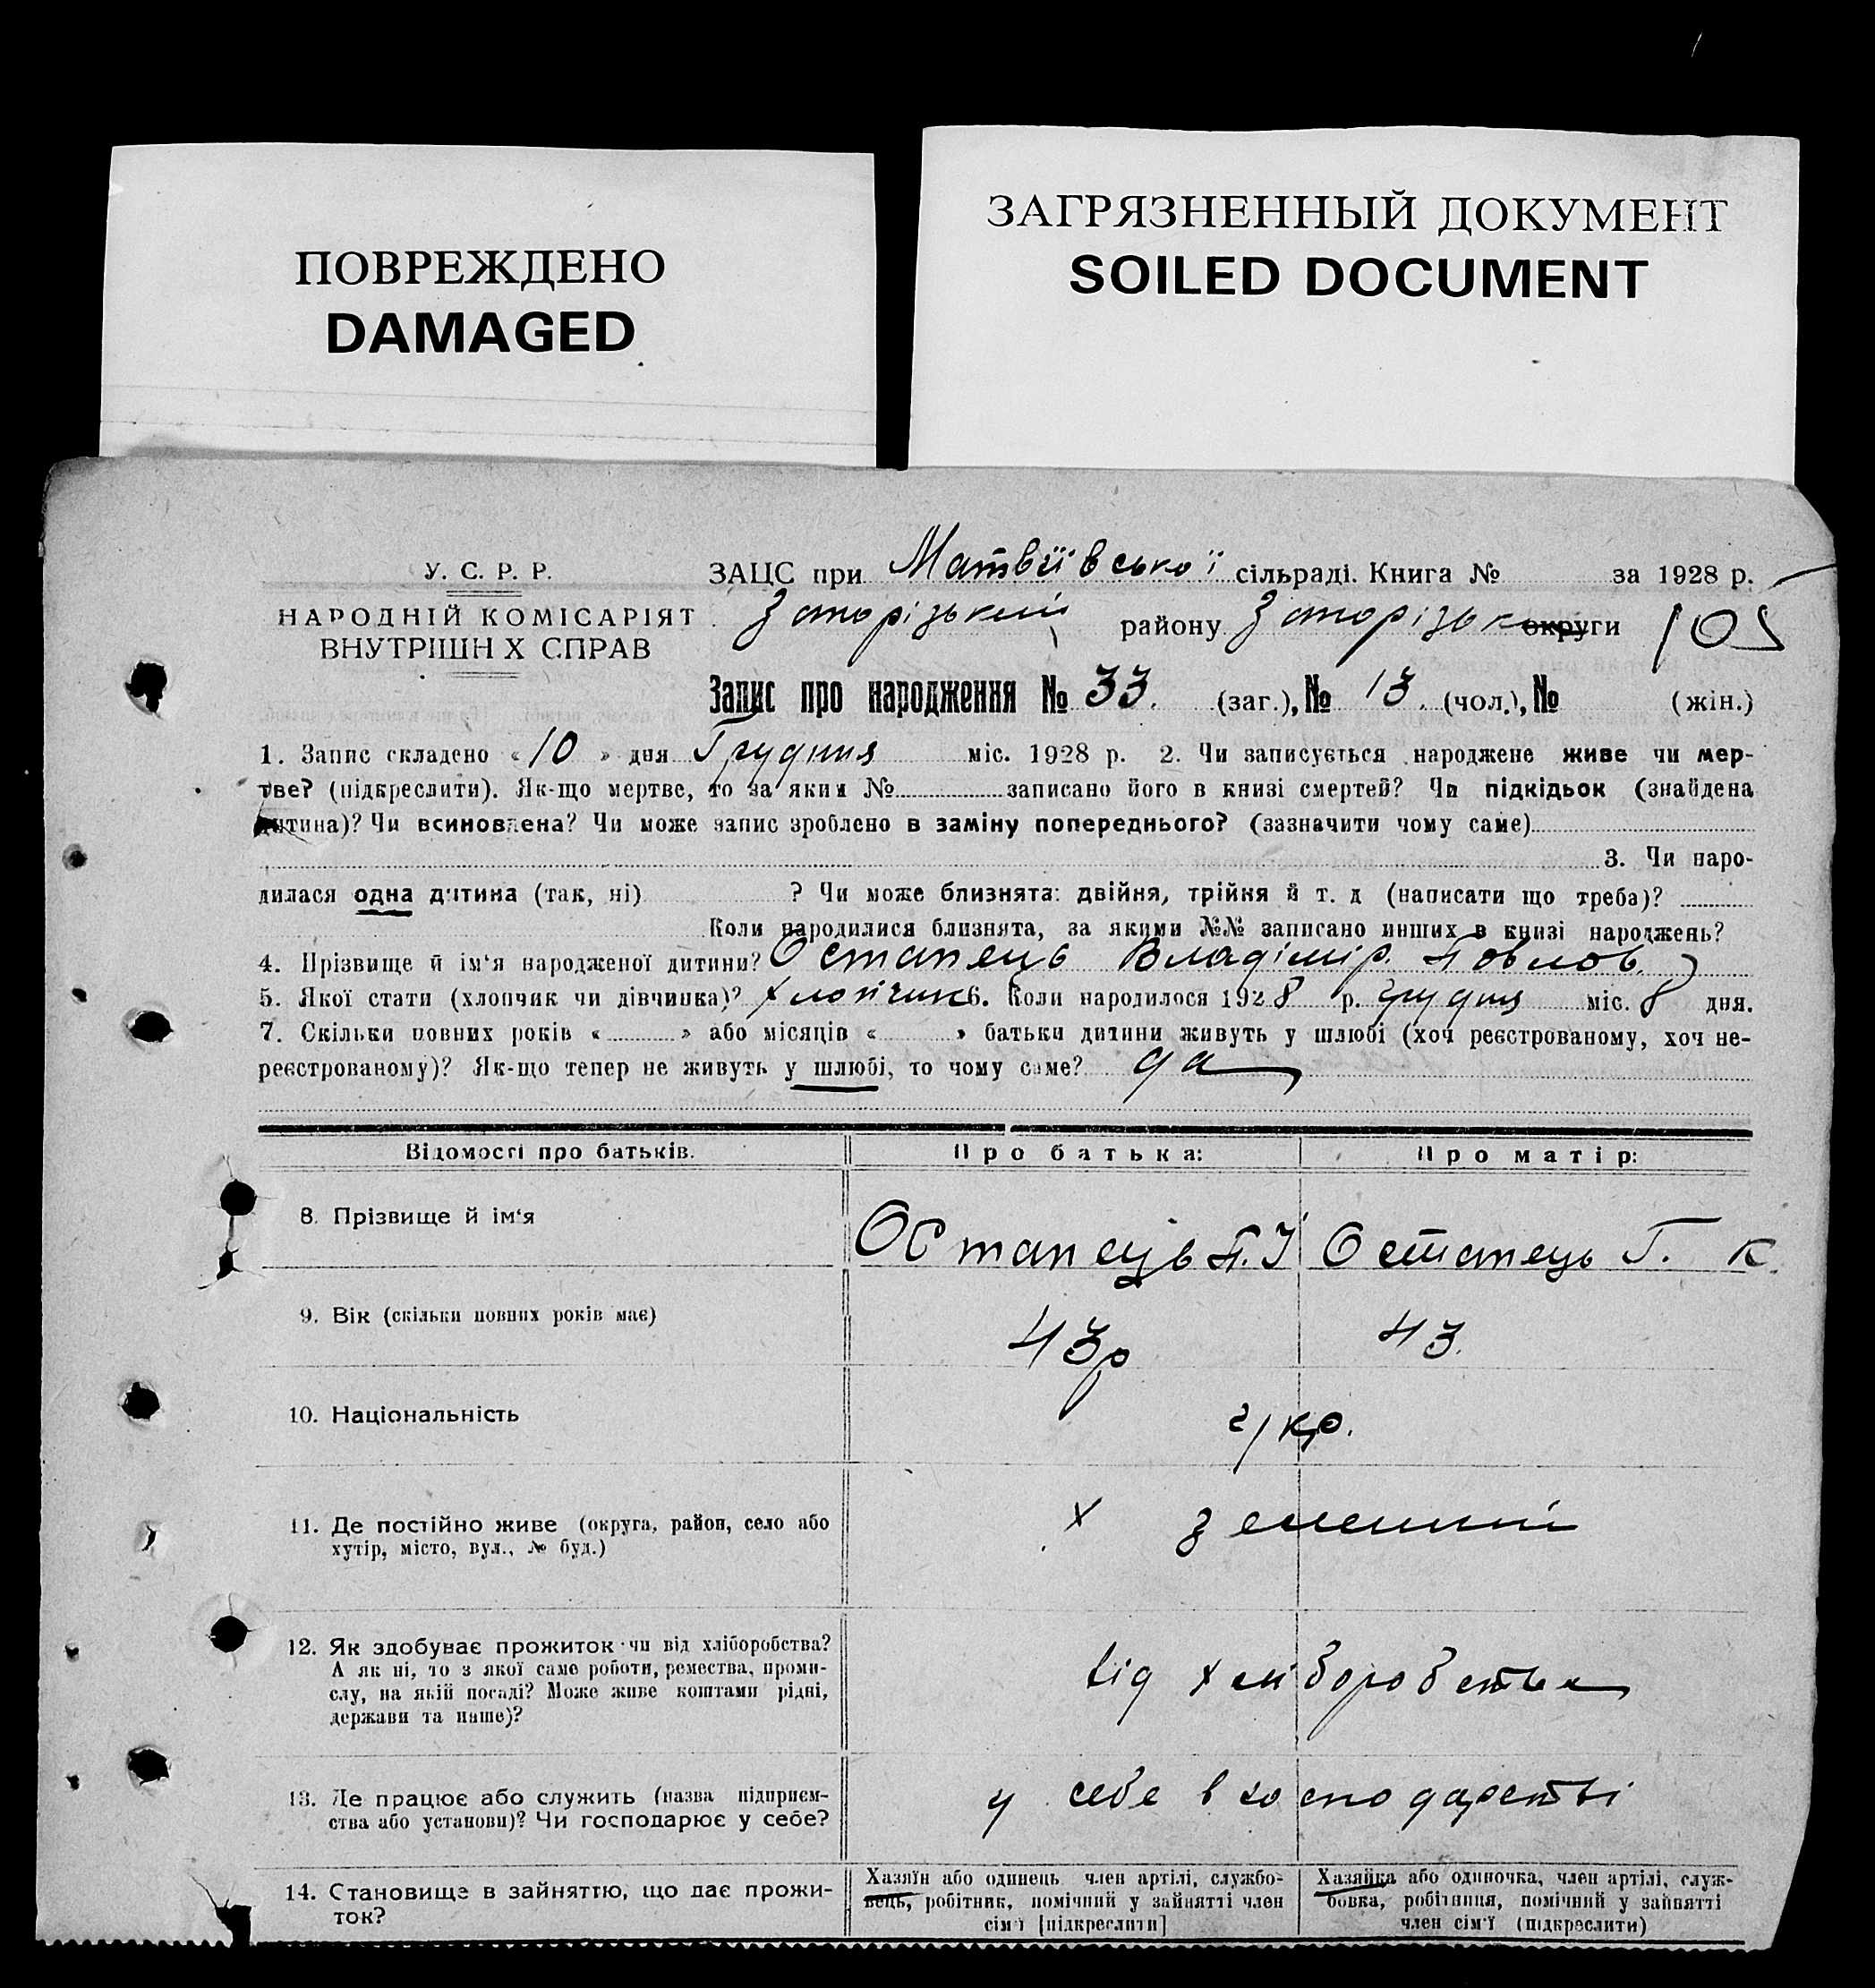 ПОВРЕЖДЕНО
DAMAGED
ЗАГРЯЗНЕННЫЙ ДОКУМЕНТ
SOILED DOCUMENT
У. С. Р. Р.
НАРОДНІЙ КОМІСАРІЯТ
ВНУТРІШН Х СПРАВ
ЗАЦС при Матвіївської сільраді. Книга № за 1928 р.
Запорізький району Запорізьк округи 105
Запис про народження № 33. (заг.), № 13. (чол.), № (жін.)
1. Запис складено «10» дня Грудния міс. 1928 р. 2. Чи записується народжене живе чи мер-
тве? (підкреслити). Як-що мертве, то за яким № записано його в книзі смертей? Чи підкідьок (знайдена
дитина)? Чи всиновлена? Чи може запис зроблено в заміну попереднього? (зазначити чому саме)
3. Чи наро-
дилася одна дитина (так, ні) ? Чи може близнята: двійня, трійня й т. д (написати що треба)?
Коли народилися близнята, за якими №№ записано инших в книзі народжень?
4. Прізвище й ім'я народженої дитини? Остапець Владімір. Повлов.
5. Якої стати (хлопчик чи дівчинка)? хлопчик 6. Коли народилося 1928 р. грудня міс. 8 дня.
7. Скільки повних років « » або місяців « » батьки дитини живуть у шлюбі (хоч реєстрованому, хоч не-
реєстрованому)? Як-що тепер не живуть у шлюбі, то чому саме? да
Відомості про батьків. Про батька: Про матір:
8. Прізвище й ім'я Остапець П. І Остапець Г. К.
9. Вік (скільки повних років має) 43р 43.
10. Національність укр.
11. Де постійно живе (округа, район, село або
хутір, місто, вул., № буд.) х Зелений
12. Як здобуває прожиток чи від хліборобства?
А як ні, то з якої саме роботи, ремества, проми-
слу, на якій посаді? Може живе коштами рідні,
держави та инше)?
від хліборобства
13. Де працює або служить (назва підприєм-
ства або установи)? Чи господарює у себе?
у себе в господарстві
14. Становище в зайняттю, що дає прожи-
ток?
Хазяїн або одинець член артілі, службо-
вець, робітник, помічний у зайнятті член
сім'ї [підкреслити]
Хазяйка або одиночка, член артілі, служ-
бовка, робітниця, помічний у зайнятті
член сім'ї (підкреслити)